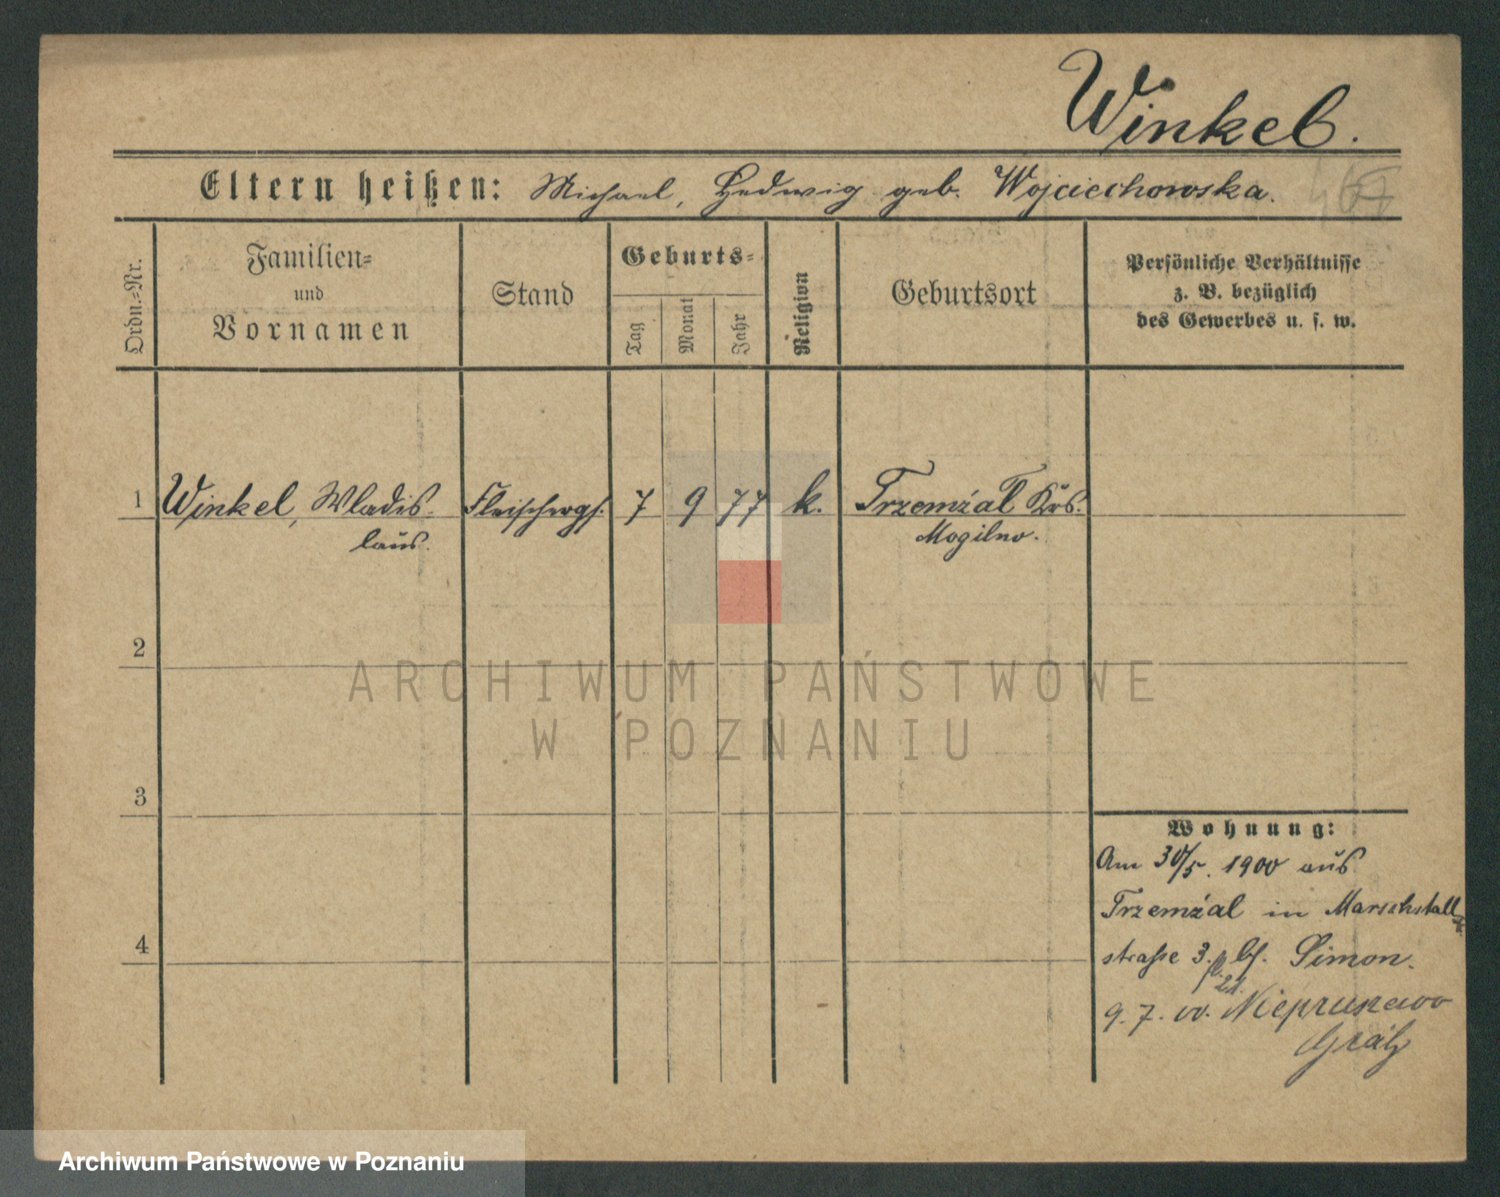 Winkel.
Eltern heißen: Michael, Hedwig geb. Wojciechowska.
Ordn.=Nr.
Familien=
und
Vornamen
Stand
Geburts=
Tag
Monat
Jahr
Religion
Geburtsort
Persönliche Verhältnisse
z. B. bezüglich
des Gewerbes u. s. w.
1 Winkel, Wladis- Fleischergs. 7 9 77 k. Trzemżal Krs.
laus. Mogilno.
2
ARCHIWUM PAŃSTWOWE
W POZNANIU
3
Wohnung:
Am 30/5. 1900 aus
Trzemżal in Marschstall
4
strasse 3. bf. Simon.
21.
9. 7. 00. Niepruszewo
Grätz
Archiwum Państwowe w Poznaniu